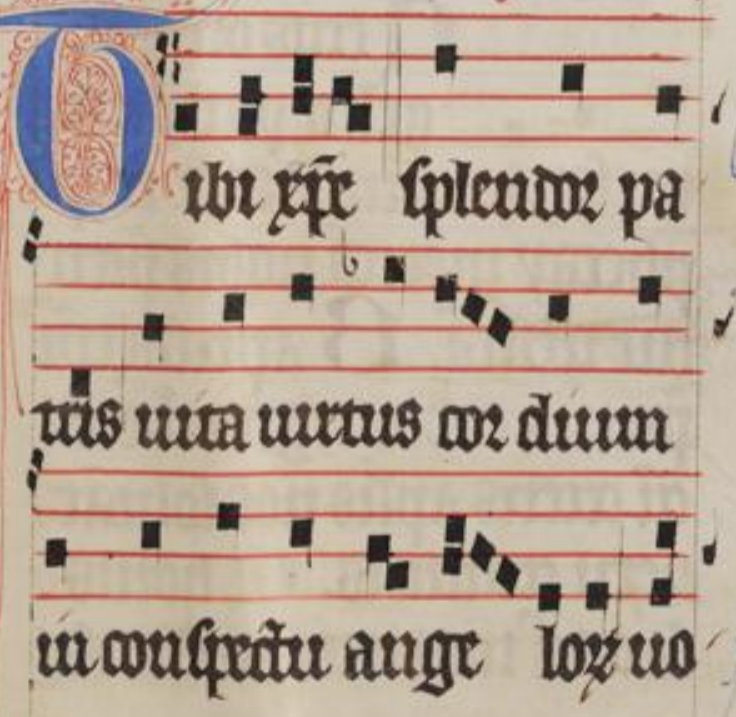 Tibi xp̄e splendor pa
tris uita uirtus cordium
in conspectu ange lorꝝ uo